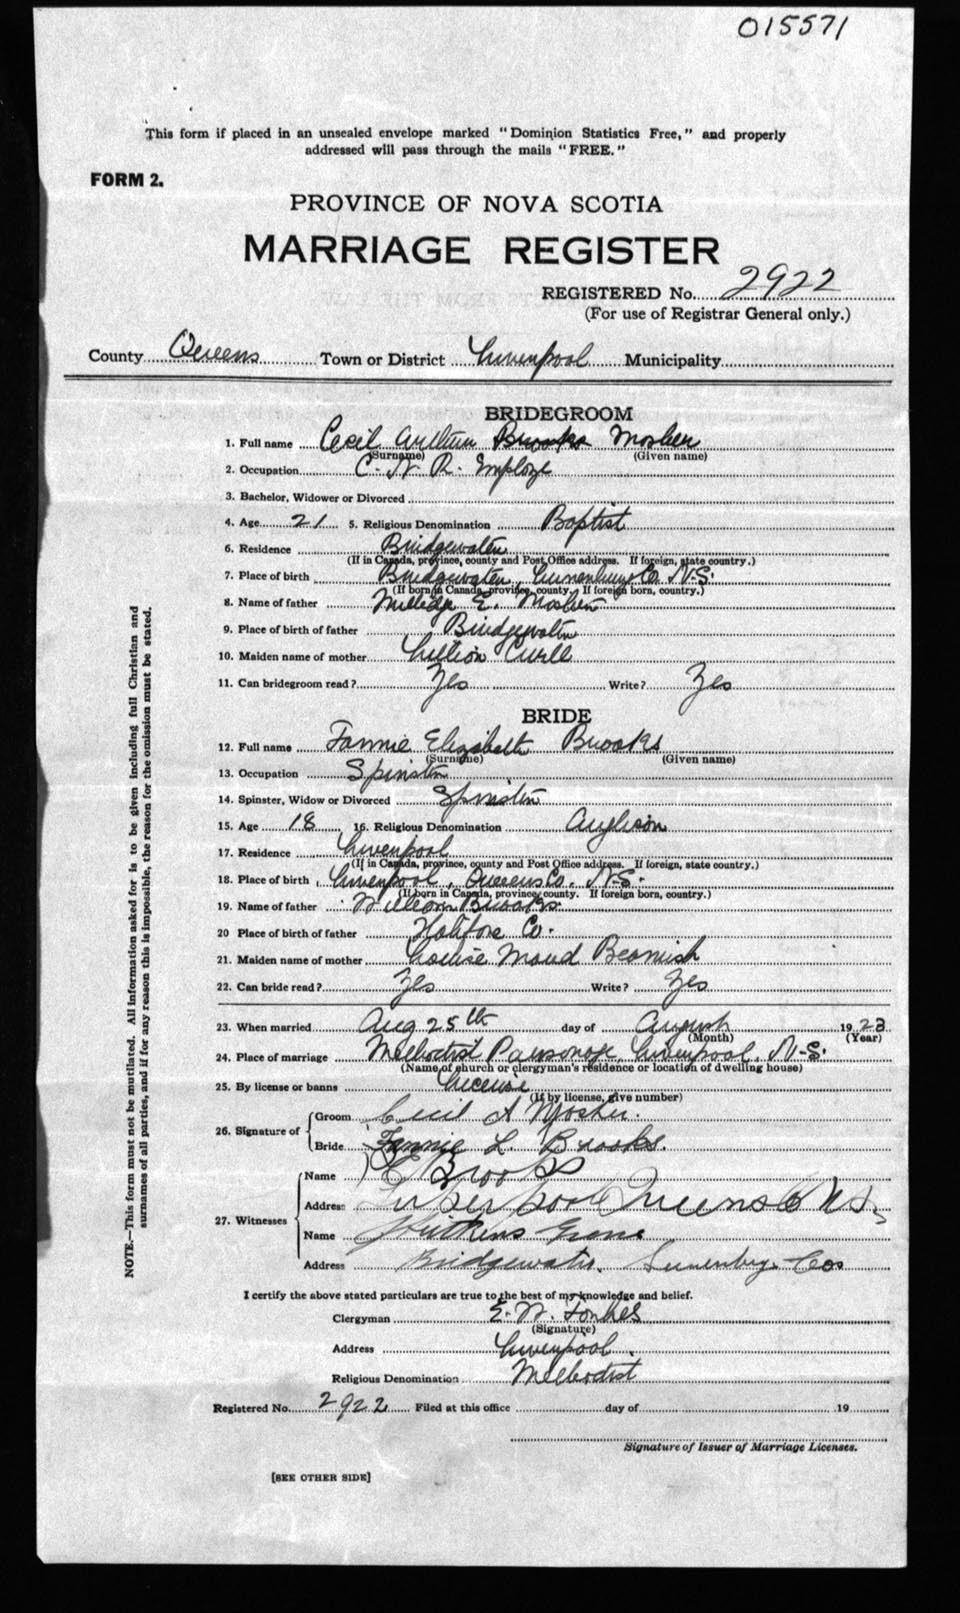 015571
This form if placed in an unsealed envelope marked "Dominion Statistics Free," and properly
addressed will pass through the mails "FREE."
FORM 2.
PROVINCE OF NOVA SCOTIA
MARRIAGE REGISTER
REGISTERED No. 2922
(For use of Registrar General only.)
County Queens Town or District Liverpool Municipality
BRIDEGROOM
1. Full name Cecil Arltun Brooks Mosher
(Surname) (Given name)
2. Occupation C. N. R. Employe
3. Bachelor, Widower or Divorced
4. Age 21 5. Religious Denomination Baptist
6. Residence Bridgewater
(If in Canada, province, county and Post Office address. If foreign, state country.)
7. Place of birth Bridgewater, Lunenburg Co. N.S.
(If born in Canada, province, county. If foreign born, country.)
8. Name of father Milledge E. Mosher
9. Place of birth of father Bridgewater
10. Maiden name of mother Lillian
11. Can bridegroom read? Yes Write? Yes
BRIDE
12. Full name Fannie Elizabeth Brooks
(Surname) (Given name)
13. Occupation Spinster
14. Spinster, Widow or Divorced Spinster
15. Age 18 16. Religious Denomination Anglican
17. Residence Liverpool
(If in Canada, province, county and Post Office address. If foreign, state country.)
18. Place of birth Liverpool, Queens Co. N.S.
(If born in Canada, province, county. If foreign born, country.)
19. Name of father William Brooks
20 Place of birth of father Halifax Co.
21. Maiden name of mother Louise Maud Beamish
22. Can bride read? Yes Write? Yes
23. When married Aug 25th day of August 1923
(Month) (Year)
24. Place of marriage Methodist Parsonage, Liverpool, N.S.
(Name of church or clergyman's residence or location of dwelling house)
25. By license or banns License
(If by license, give number)
26. Signature of Groom Cecil A Mosher.
Bride Fannie L. Brooks.
27. Witnesses Name E Brooks
Address Liverpool Queens Co N.S.
Name
Address Bridgewater. Lunenburg. Co
I certify the above stated particulars are true to the best of my knowledge and belief.
Clergyman E. W. Forbes
(Signature)
Address Liverpool.
Religious Denomination Methodist
Registered No. 2922 Filed at this office day of 19
Signature of Issuer of Marriage Licenses.
[SEE OTHER SIDE]
NOTE.—This form must not be mutilated. All information asked for is to be given including full Christian and
surnames of all parties, and if for any reason this is impossible, the reason for the omission must be stated.